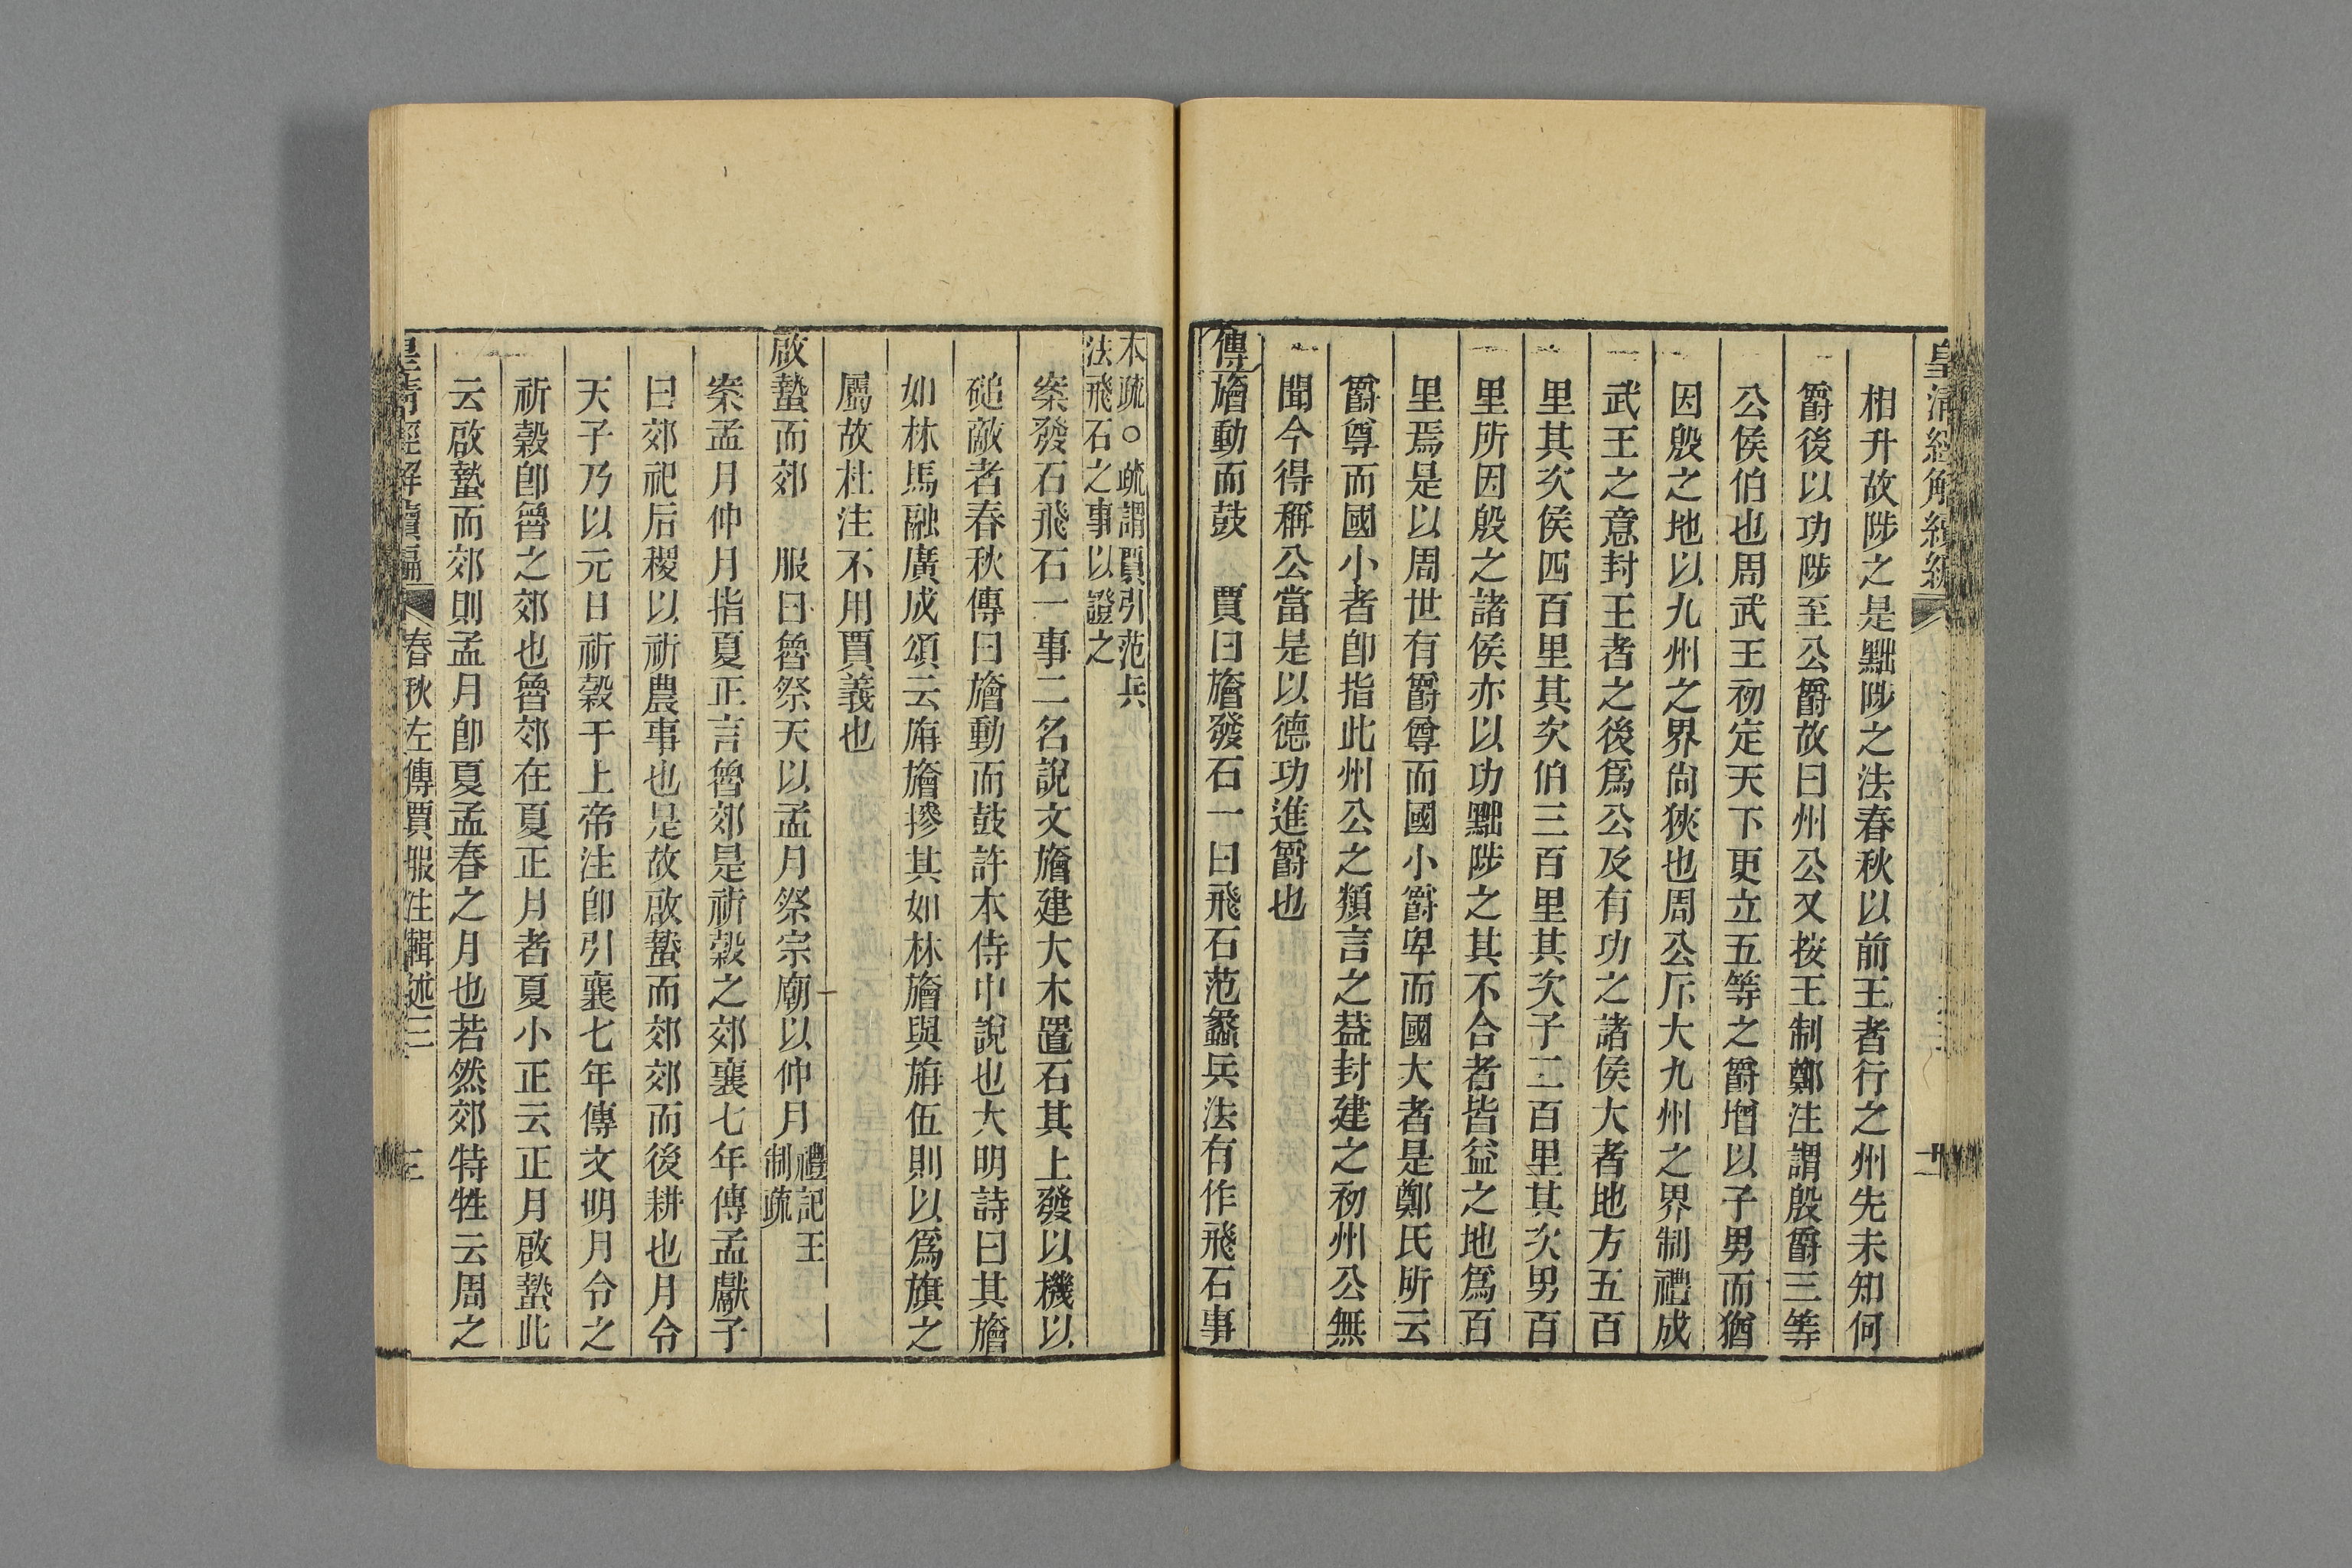 皇清經解續編
相升故陟之是黜陟之法春秋以前王者行之州先未知何
爵後以功陟至公爵故曰州公又按王制鄭注謂殷爵三等
公侯伯也周武王初定天下更立五等之爵增以子男而猶
因殷之地以九州之界尙狹也周公斥大九州之界制禮成
武王之意封王者之後爲公及有功之諸侯大者地方五百
里其次侯四百里其次伯三百里其次子二百里其次男百
里所因殷之諸侯亦以功黜陟之其不合者皆益之地爲百
里焉是以周世有爵尊而國小爵卑而國大者是鄭氏所云
爵尊而國小者卽指此州公之類言之葢封建之初州公無
聞今得稱公當是以德功進爵也
傳旝動而鼓　賈曰旝發石一曰飛石范蠡兵法有作飛石事
本疏○疏謂賈引范兵
法飛石之事以證之
案發石飛石一事二名說文旝建大木置石其上發以機以
磓敵者春秋傳曰旝動而鼓許本侍中說也大明詩曰其旝
如林馬融廣成頌云旃旝摻其如林旝與旃伍則以爲旗之
屬故杜注不用賈義也
啟蟄而郊　服曰魯祭天以孟月祭宗廟以仲月禮記王
制疏
案孟月仲月指夏正言魯郊是祈穀之郊襄七年傳孟獻子
曰郊祀后稷以祈農事也是故啟蟄而郊郊而後耕也月令
天子乃以元日祈穀于上帝注卽引襄七年傳文明月令之
祈穀卽魯之郊也魯郊在夏正月者夏小正云正月啟蟄此
云啟蟄而郊則孟月卽夏孟春之月也若然郊特牲云周之
皇清經解續編　春秋左傳賈服注輯述三　三